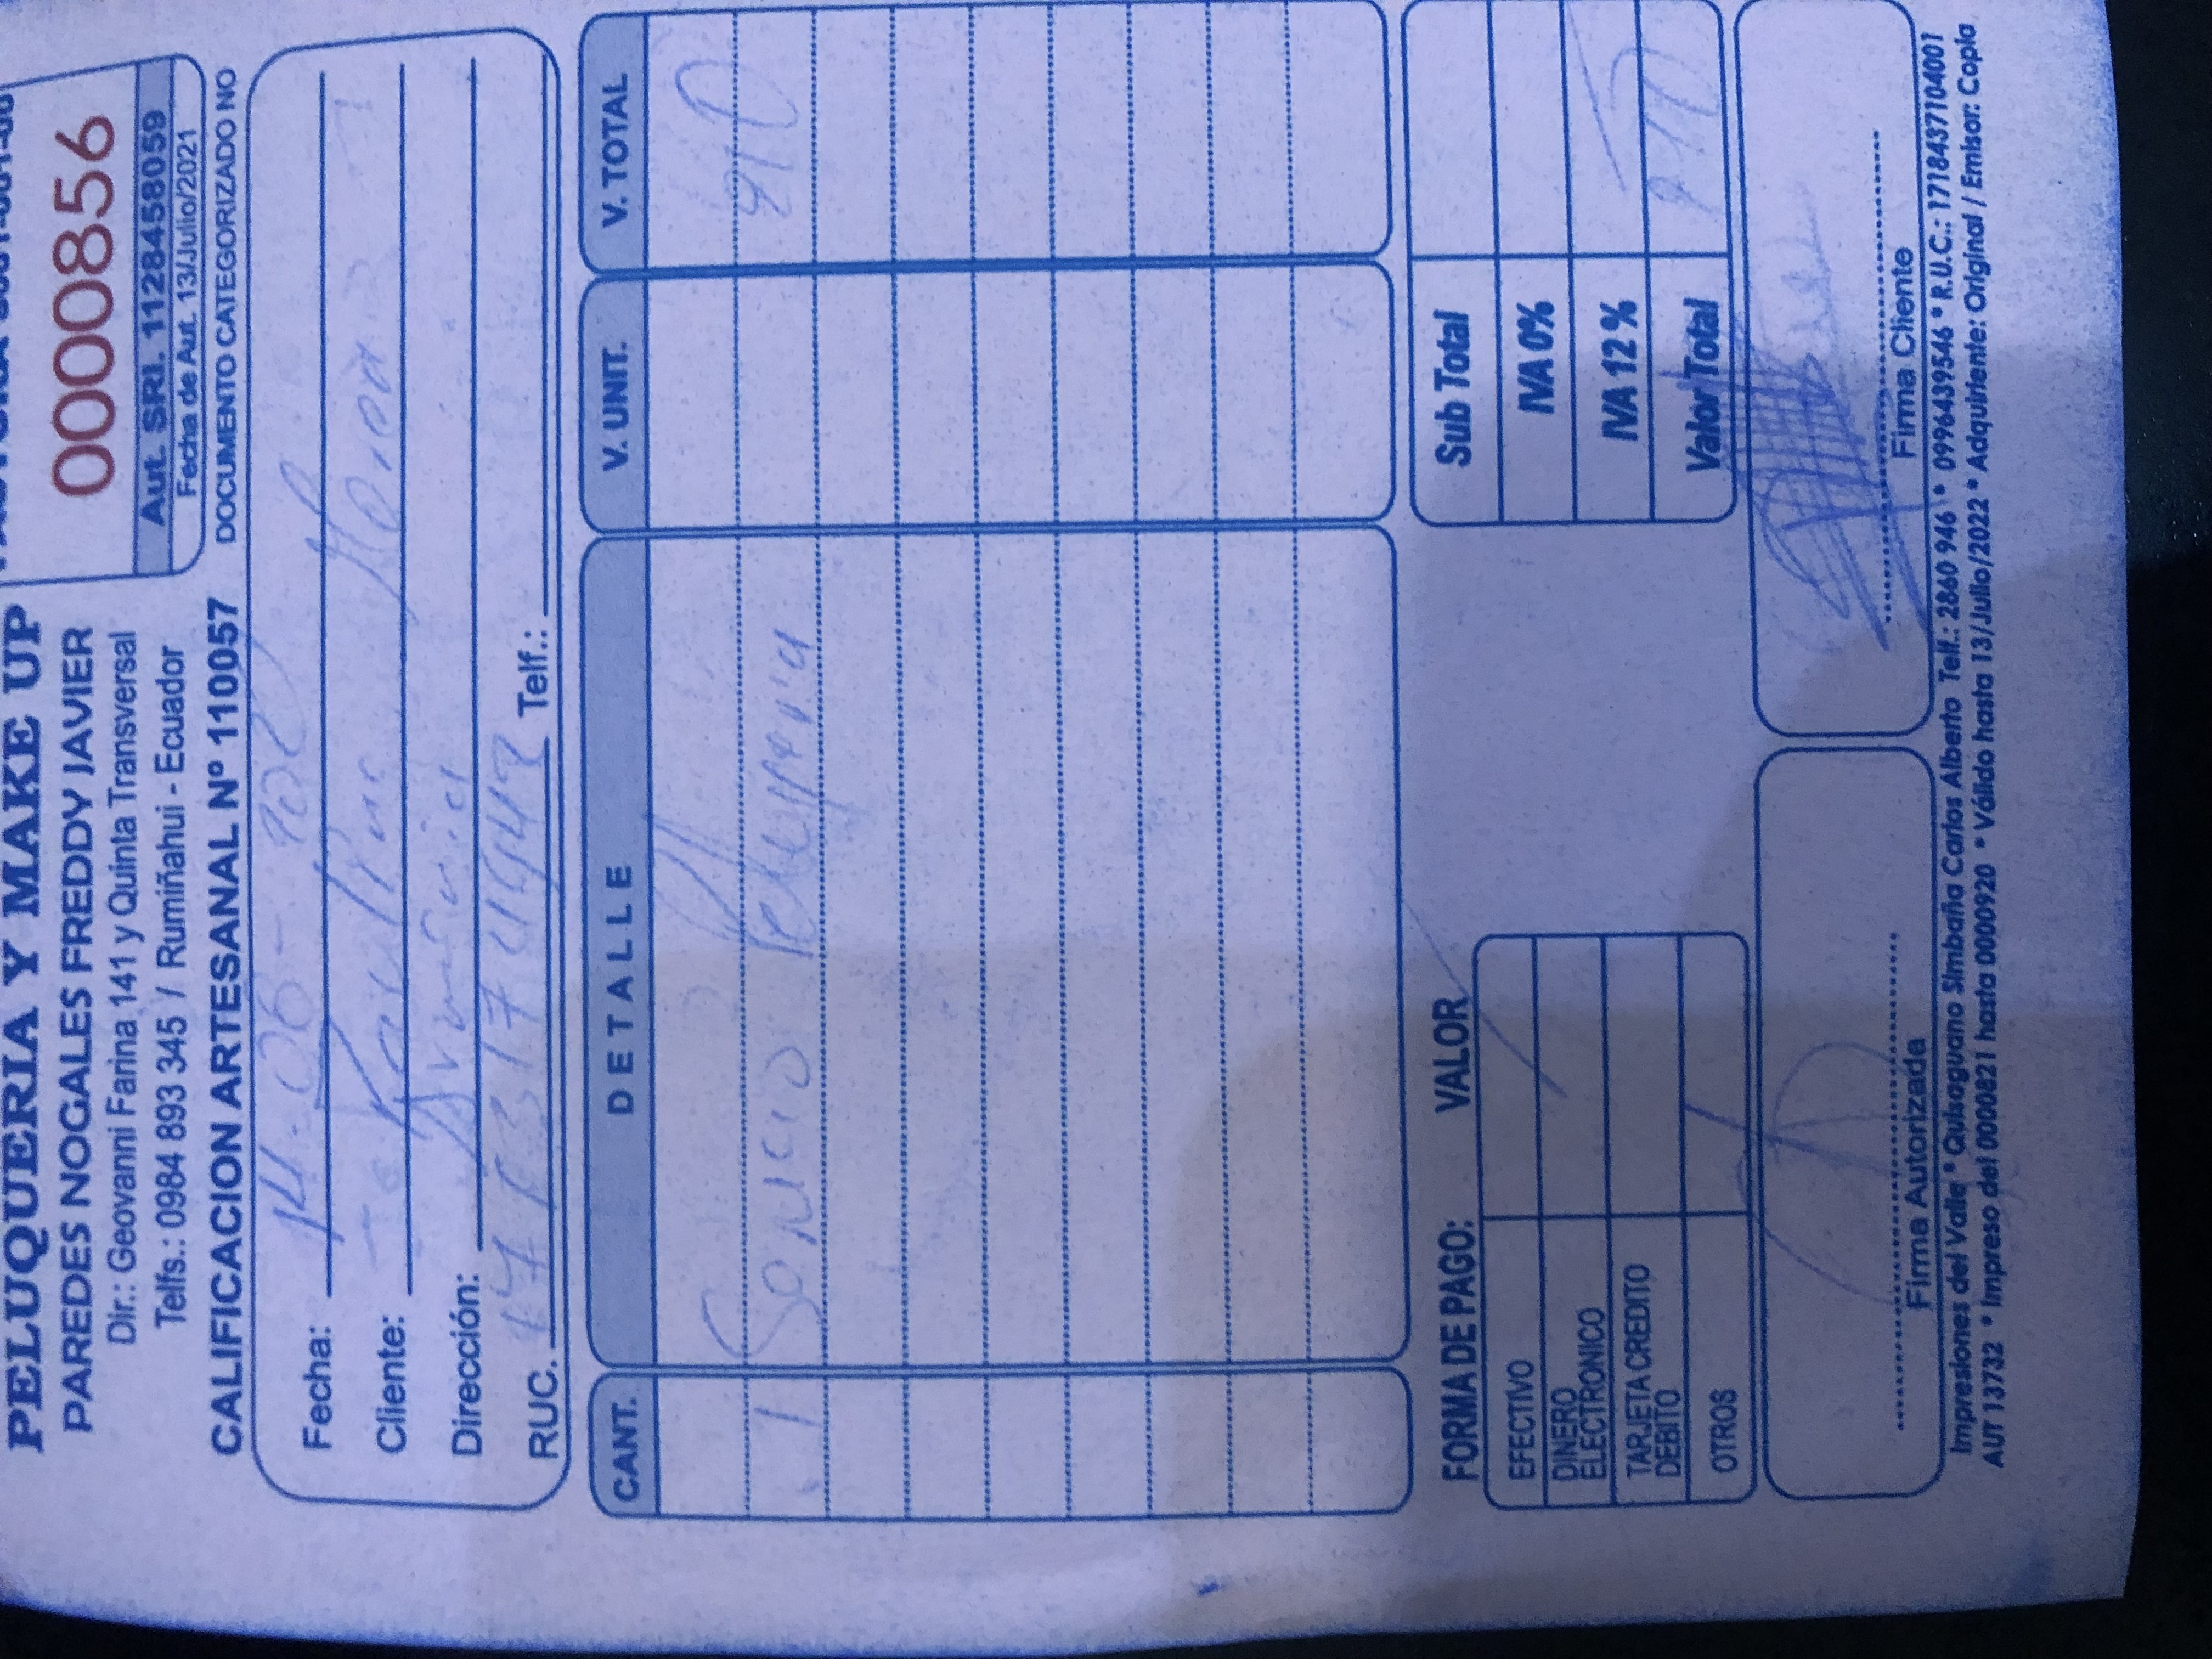 PELUQUERIA Y MAKE UP
PAREDES NOGALES FREDDY JAVIER
Dir.: Geovanni Farina 141 y Quinta Transversal
Telfs.: 0984 893 345 / Rumiñahui - Ecuador
CALIFICACION ARTESANAL Nº 110057
FACTURA
0000856
Aut. SRI. 1128458059
Fecha de Aut. 13/Julio/2021
DOCUMENTO CATEGORIZADO NO
Fecha: 14-06-
Cliente: Paulina
Dirección: Armenia
RUC.
Telf.:
CANT. DETALLE V. UNIT. V. TOTAL
1 Servicio Peluqueria 210
FORMA DE PAGO: VALOR
EFECTIVO
DINERO
ELECTRONICO
TARJETA CREDITO
DEBITO
OTROS
Sub Total
IVA 0%
IVA 12 %
Valor Total 210
Firma Autorizada
Firma Cliente
Impresiones del Valle * Quisaguano Simbaña Carlos Alberto Telf.: 2860 946 * 0996439546 * R.U.C.: 1718437104001
AUT 13732 * Impreso del 0000821 hasta 0000920 * Válido hasta 13/Julio/2022 * Adquiriente: Original / Emisor: Copia